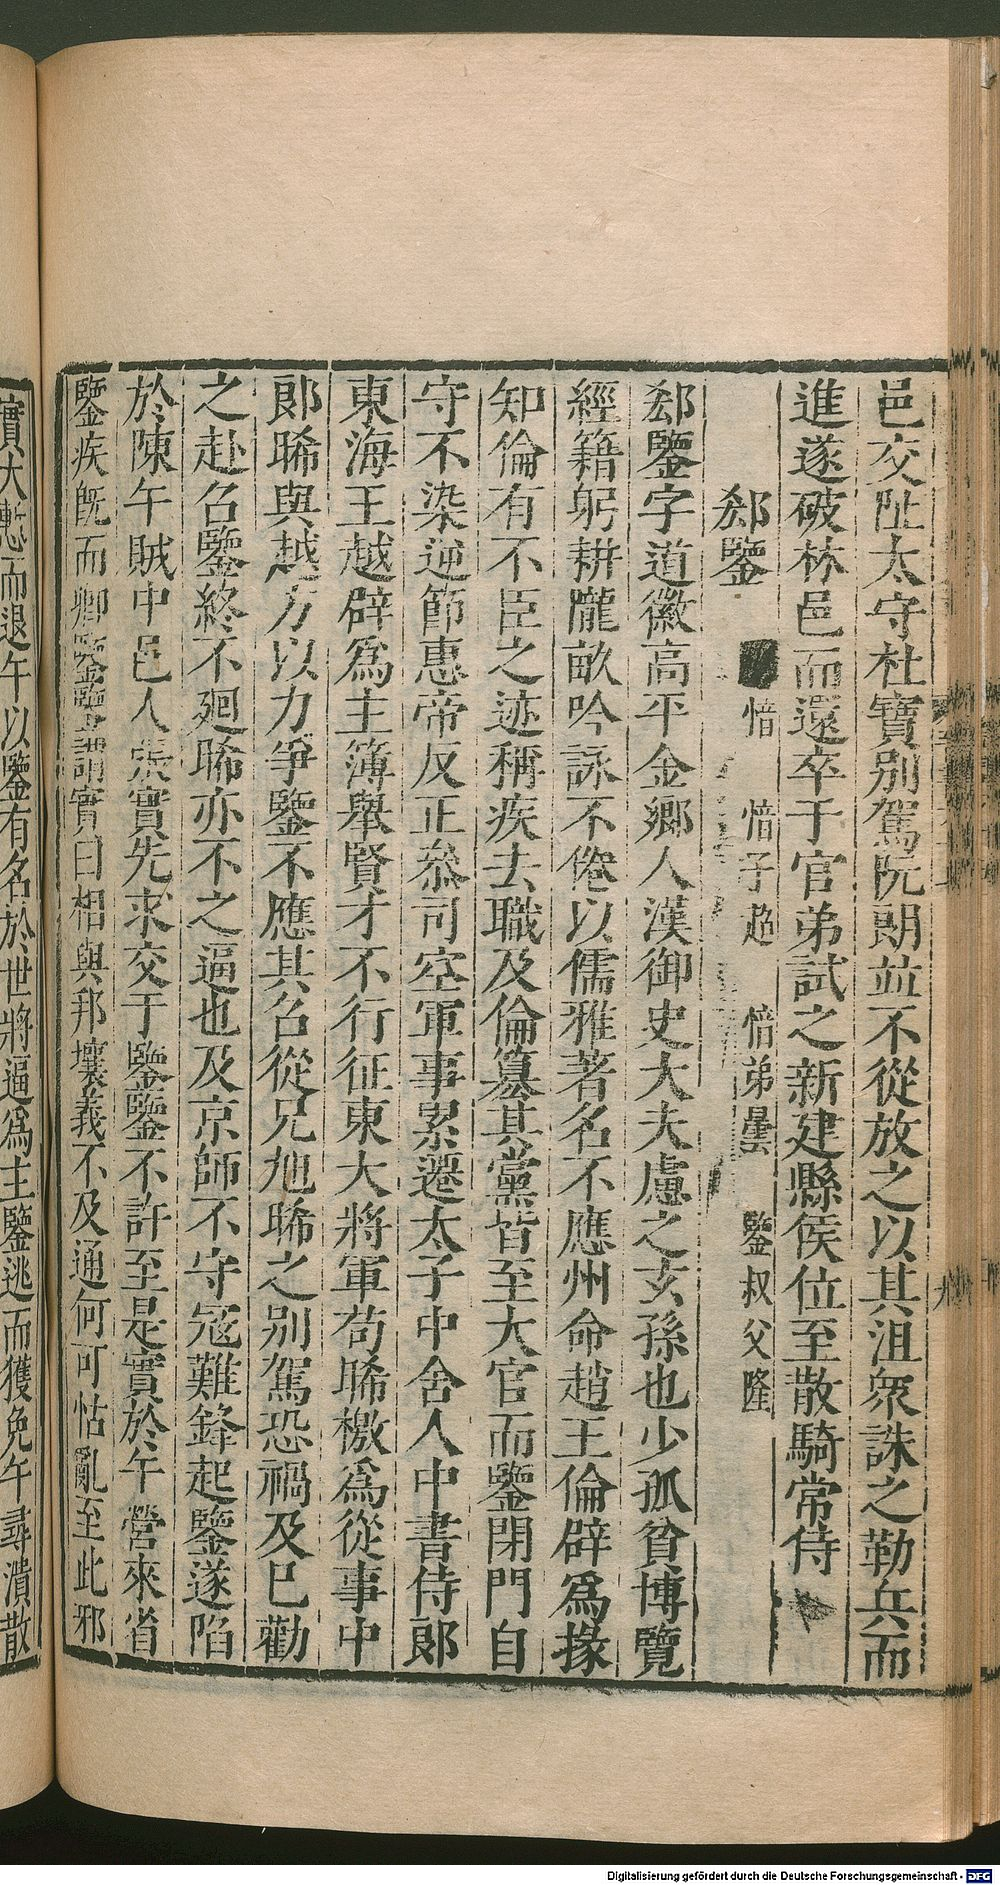 邑交阯太守杜寶別駕阮朗並不從放之以其沮衆誅之勒兵而
進遂破林邑而還卒于官弟試之新建縣侯位至散騎常侍
郄鑒 愔 愔子超 愔弟曇 鑒叔父隆
郄鑒字道徽高平金鄉人漢御史大夫慮之玄孫也少孤貧博覽
經籍躬耕隴畝吟詠不倦以儒雅著名不應州命趙王倫辟爲掾
知倫有不臣之迹稱疾去職及倫篡其黨皆至大官而鑒閉門自
守不染逆節惠帝反正叅司空軍事累遷太子中舍人中書侍郎
東海王越辟爲主簿舉賢才不行征東大將軍苟晞檄爲從事中
郎晞與越方以力爭鑒不應其召從兄旭晞之別駕恐禍及巳勸
之赴召鑒終不廻晞亦不之逼也及京師不守冦難鋒起鑒遂陷
於陳午賊中邑人張實先求交于鑒鑒不許至是實於午營來省
鑒疾旣而卿鑒鑒謂實曰相與邦壤義不及通何可怙亂至此邪
實大慙而退午以鑒有名於世將逼爲主鑒逃而獲免午尋潰散
Digitalisierung gefördert durch die Deutsche Forschungsgemeinschaft - DFG